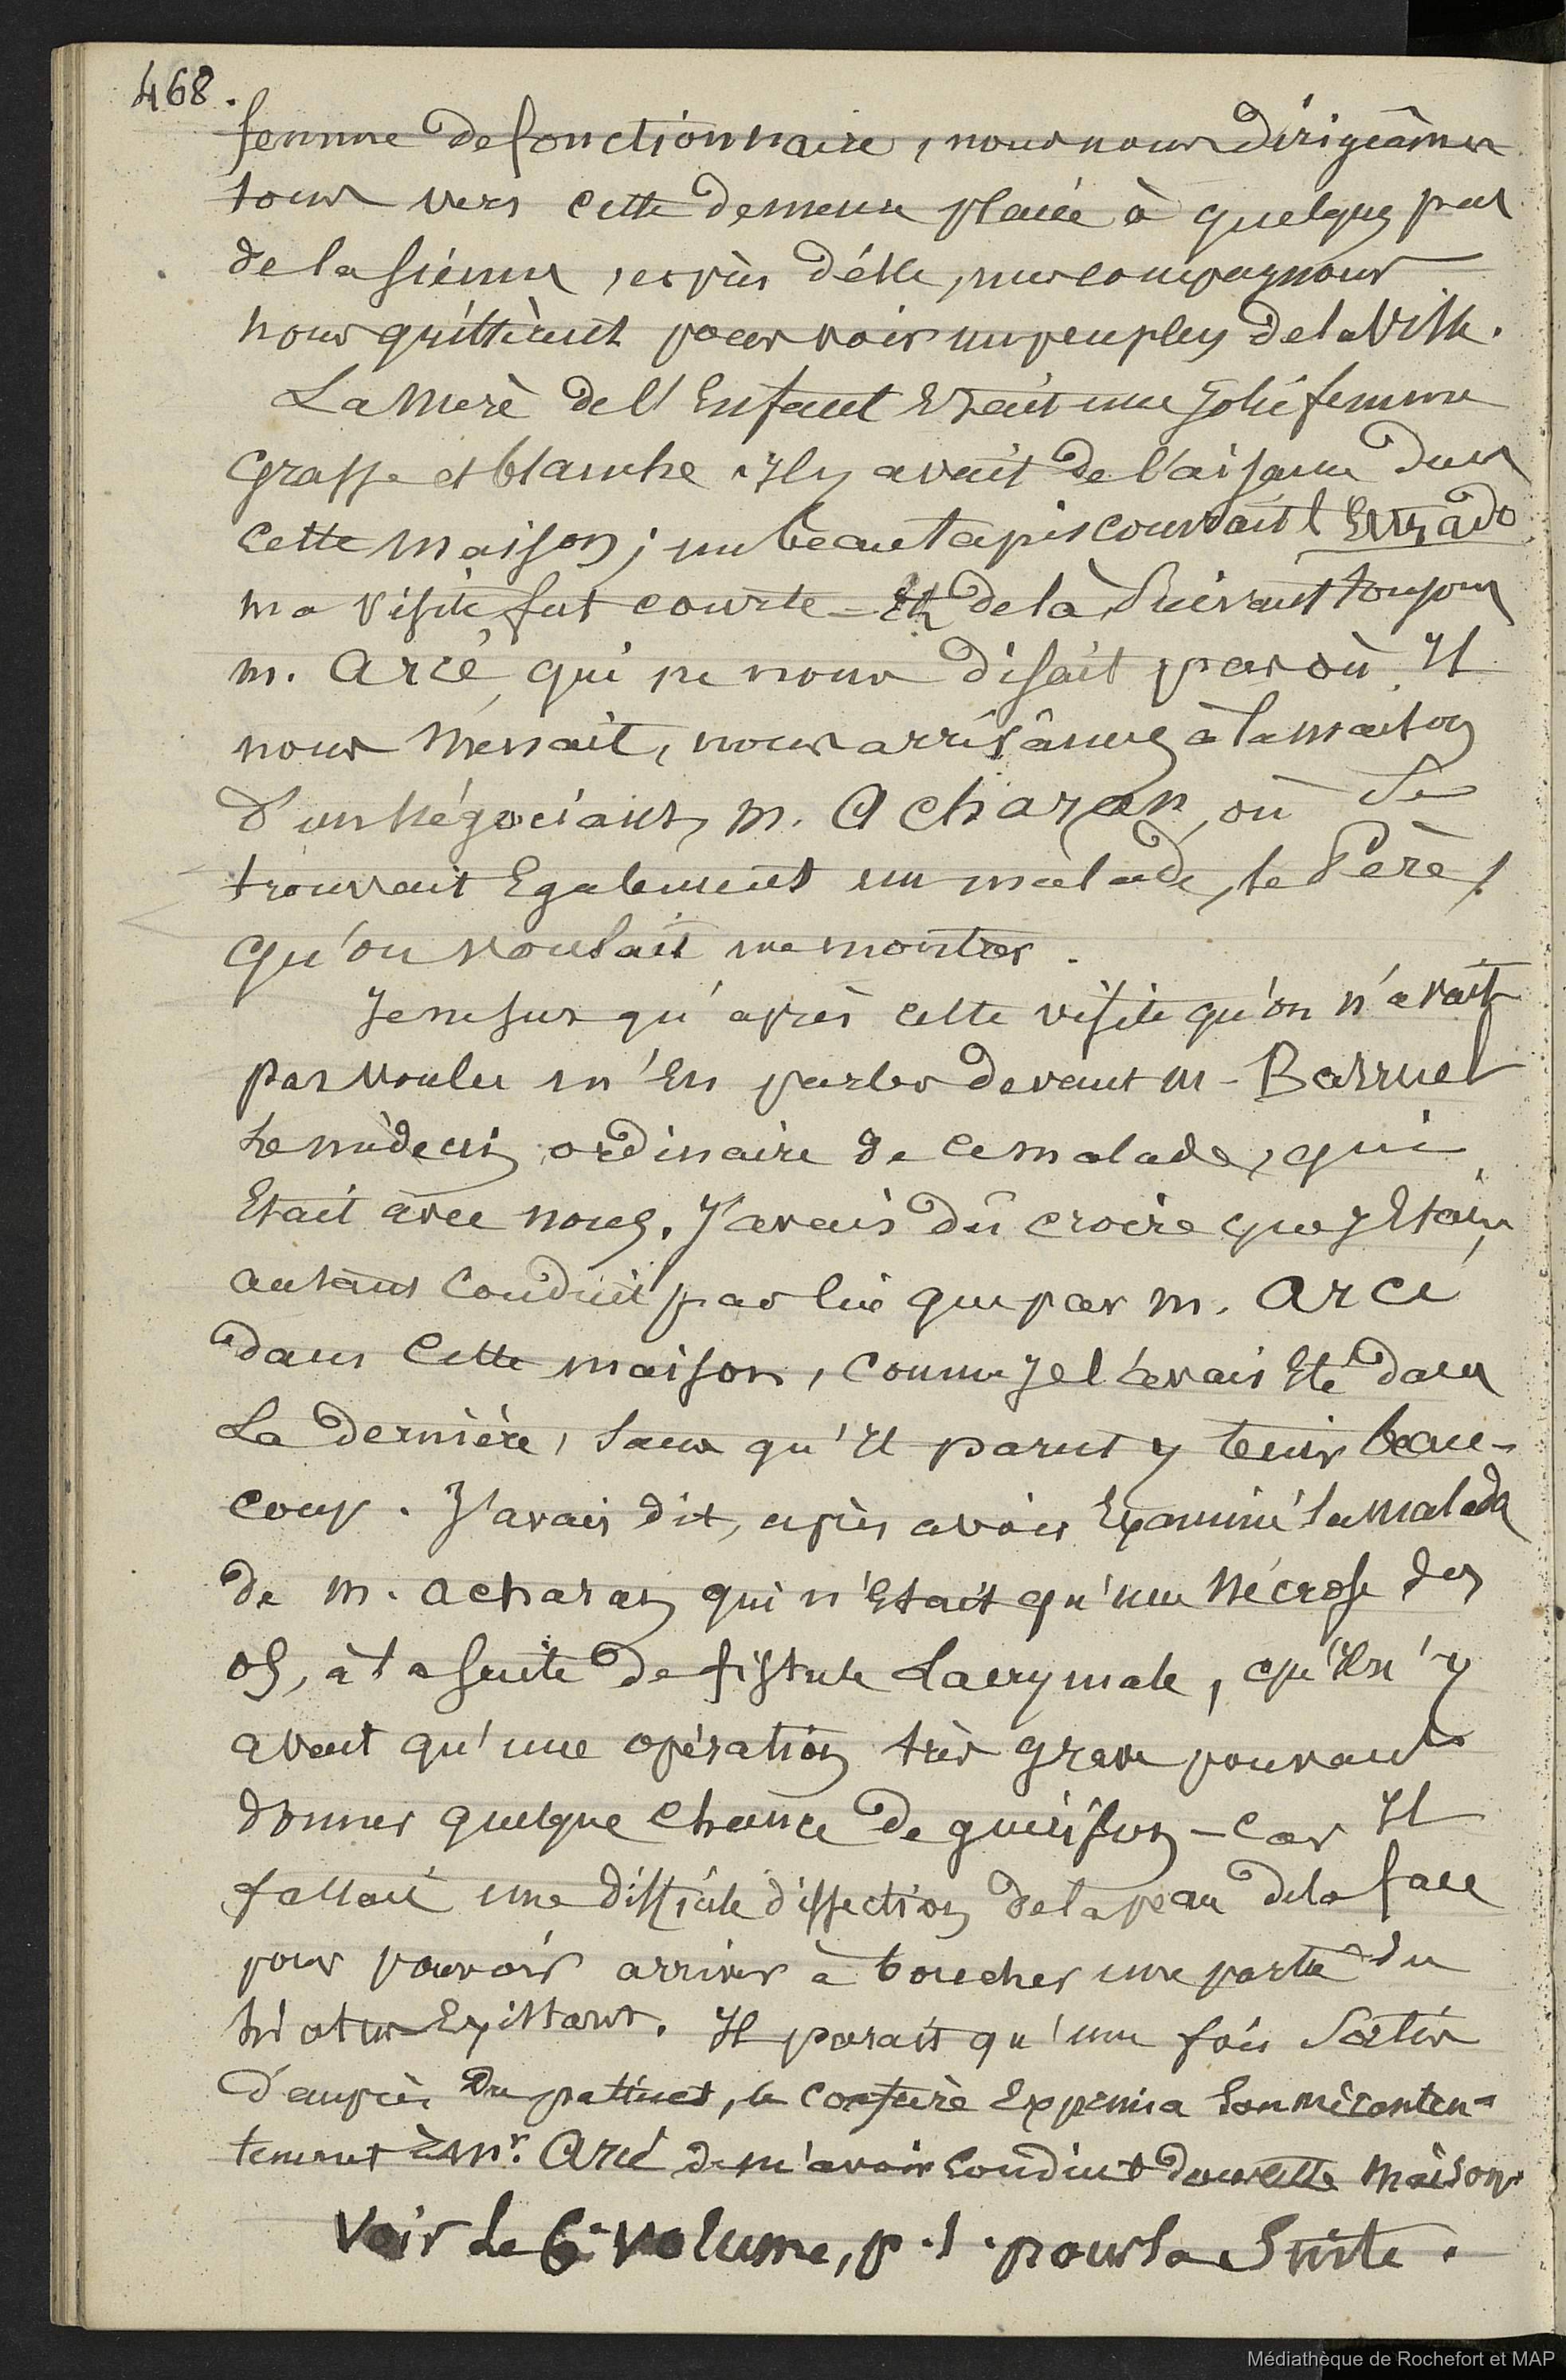 468.
femme de fonctionnaire, nous nous dirigeâmes
tous vers cette demeure placée à quelques pas
de la sienne, et près d'elle, mes compagnons
nous quittèrent pour voir un peu plus de la ville.
La Mère de l'Enfant Etait une Jolie femme
grasse et blanche. Il y avait de l'aisance dans
cette maison; un beau tapis couvrait l'Estrado
ma visite fut courte - Et de là Suivant toujours
m. Arcé, qui ne nous disait pas où Il
nous menait, nous arrivâmes à la maison
d'un Négociant, m. Acharan, où Se
trouvait Egalement un malade, le Père,
qu'on voulait me montrer.
Je ne sus qu'après cette visite qu'on n'avait
pas voulu m'En parler devant m. Barruel
Le médecin ordinaire de ce malade, qui
Etait avec nous. J'avais dû croire que j'Etais
autant conduit par lui que par m. Arcé
dans cette maison, comme je l'avais Eté dans
La dernière, sans qu'Il parut y tenir beau-
coup. J'avais dit, après avoir Examiné le malade
de m. Acharan qui n'Etait qu'une Nécrose des
os, à la suite de fistule Lacrymale, qu'Il n'y
avait qu'une opération très grave pouvant
donner quelque chance de guérison - car Il
fallait une difficile dissection de la peau de la face
pour pouvoir arriver à boucher une partie du
hiatus Existant. Il parait qu'une fois Sortis
d'auprès du patient, le confrère Exprima Son mécontен-
tement à Mr. Arcé de m'avoir Conduit dans cette maison.
Voir Le 6e volume, p. 1. pour la Suite.
Médiathèque de Rochefort et MAP